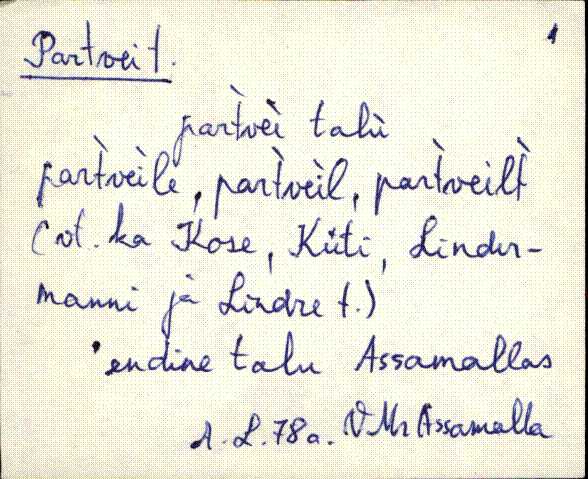 1
Partvei t.
par̀tvèi talù
par̀tveìle, par̀tveìl, par̀tveilt̀
(vt. ka Kose, Küti, Linder-
manni ja Lindre t.)
endine talu Assamallas
A. L. 78a. VMr Assamalla